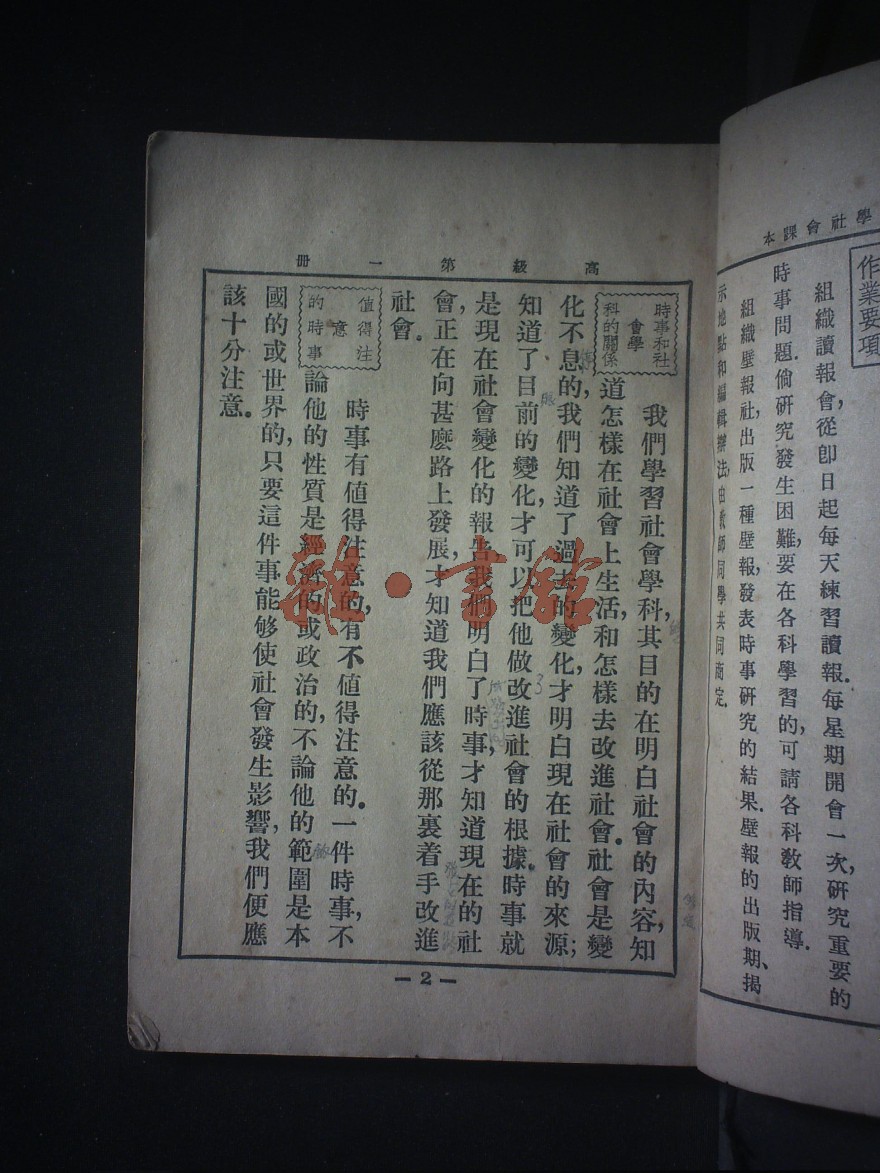 學社會課本
作業要項
組織讀報會,從卽日起每天練習讀報.每星期開會一次,硏究重要的
時事問題.倘硏究發生困難,要在各科學習的,可請各科敎師指導.
組織壁報社,出版一種壁報,發表時事硏究的結果.壁報的出版期、揭
示地點和編輯辦法,由敎師同學共同商定.
高級第一冊
時事和社
會學
科的關係
我們學習社會學科,其目的在明白社會的內容,知
道怎樣在社會上生活,和怎樣去改進社會.社會是變
化不息的,我們知道了過去的變化,才明白現在社會的來源;
知道了目前的變化,才可以把他做改進社會的根據.時事就
是現在社會變化的報告,我們明白了時事,才知道現在的社
會,正在向甚麽路上發展,才知道我們應該從那裏着手改進
社會.
值得注
意
的時事
時事有値得注意的,有不値得注意的.一件時事,不
論他的性質是經濟的或政治的,不論他的範圍是本
國的或世界的,只要這件事能够使社會發生影響,我們便應
該十分注意.
雜·书館
— 2 —